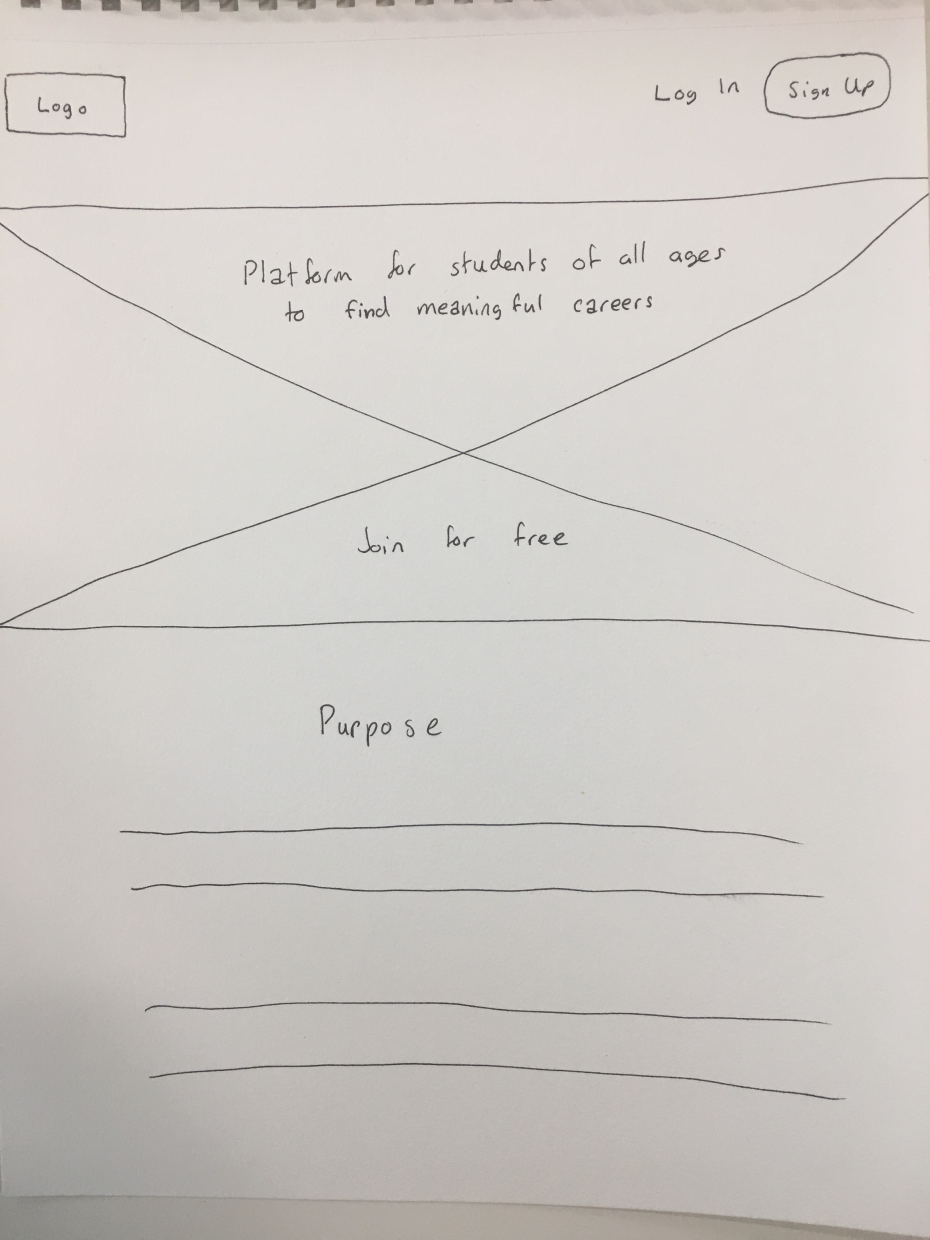 Logo
Log In
Sign Up
Platform for students of all ages
to find meaningful careers
Join for free
Purpose